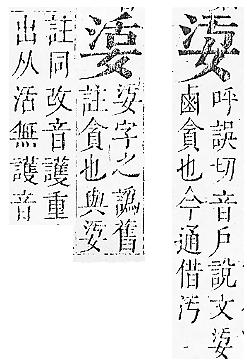 呼誤切音戶說文
鹵貪也今通借汚
字之譌舊
註貪也與
註同改音護重
出从活無護音